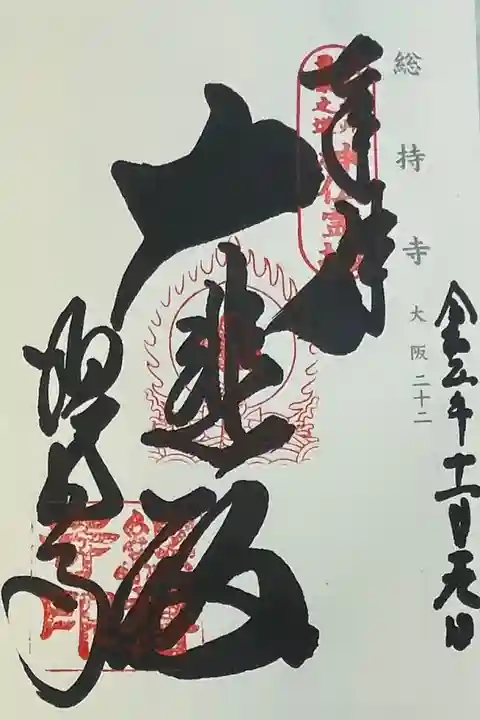 令五年十一月元日
総持寺 大阪二十二
奉拝
神仏霊場
大悲殿
総持寺
総持寺印